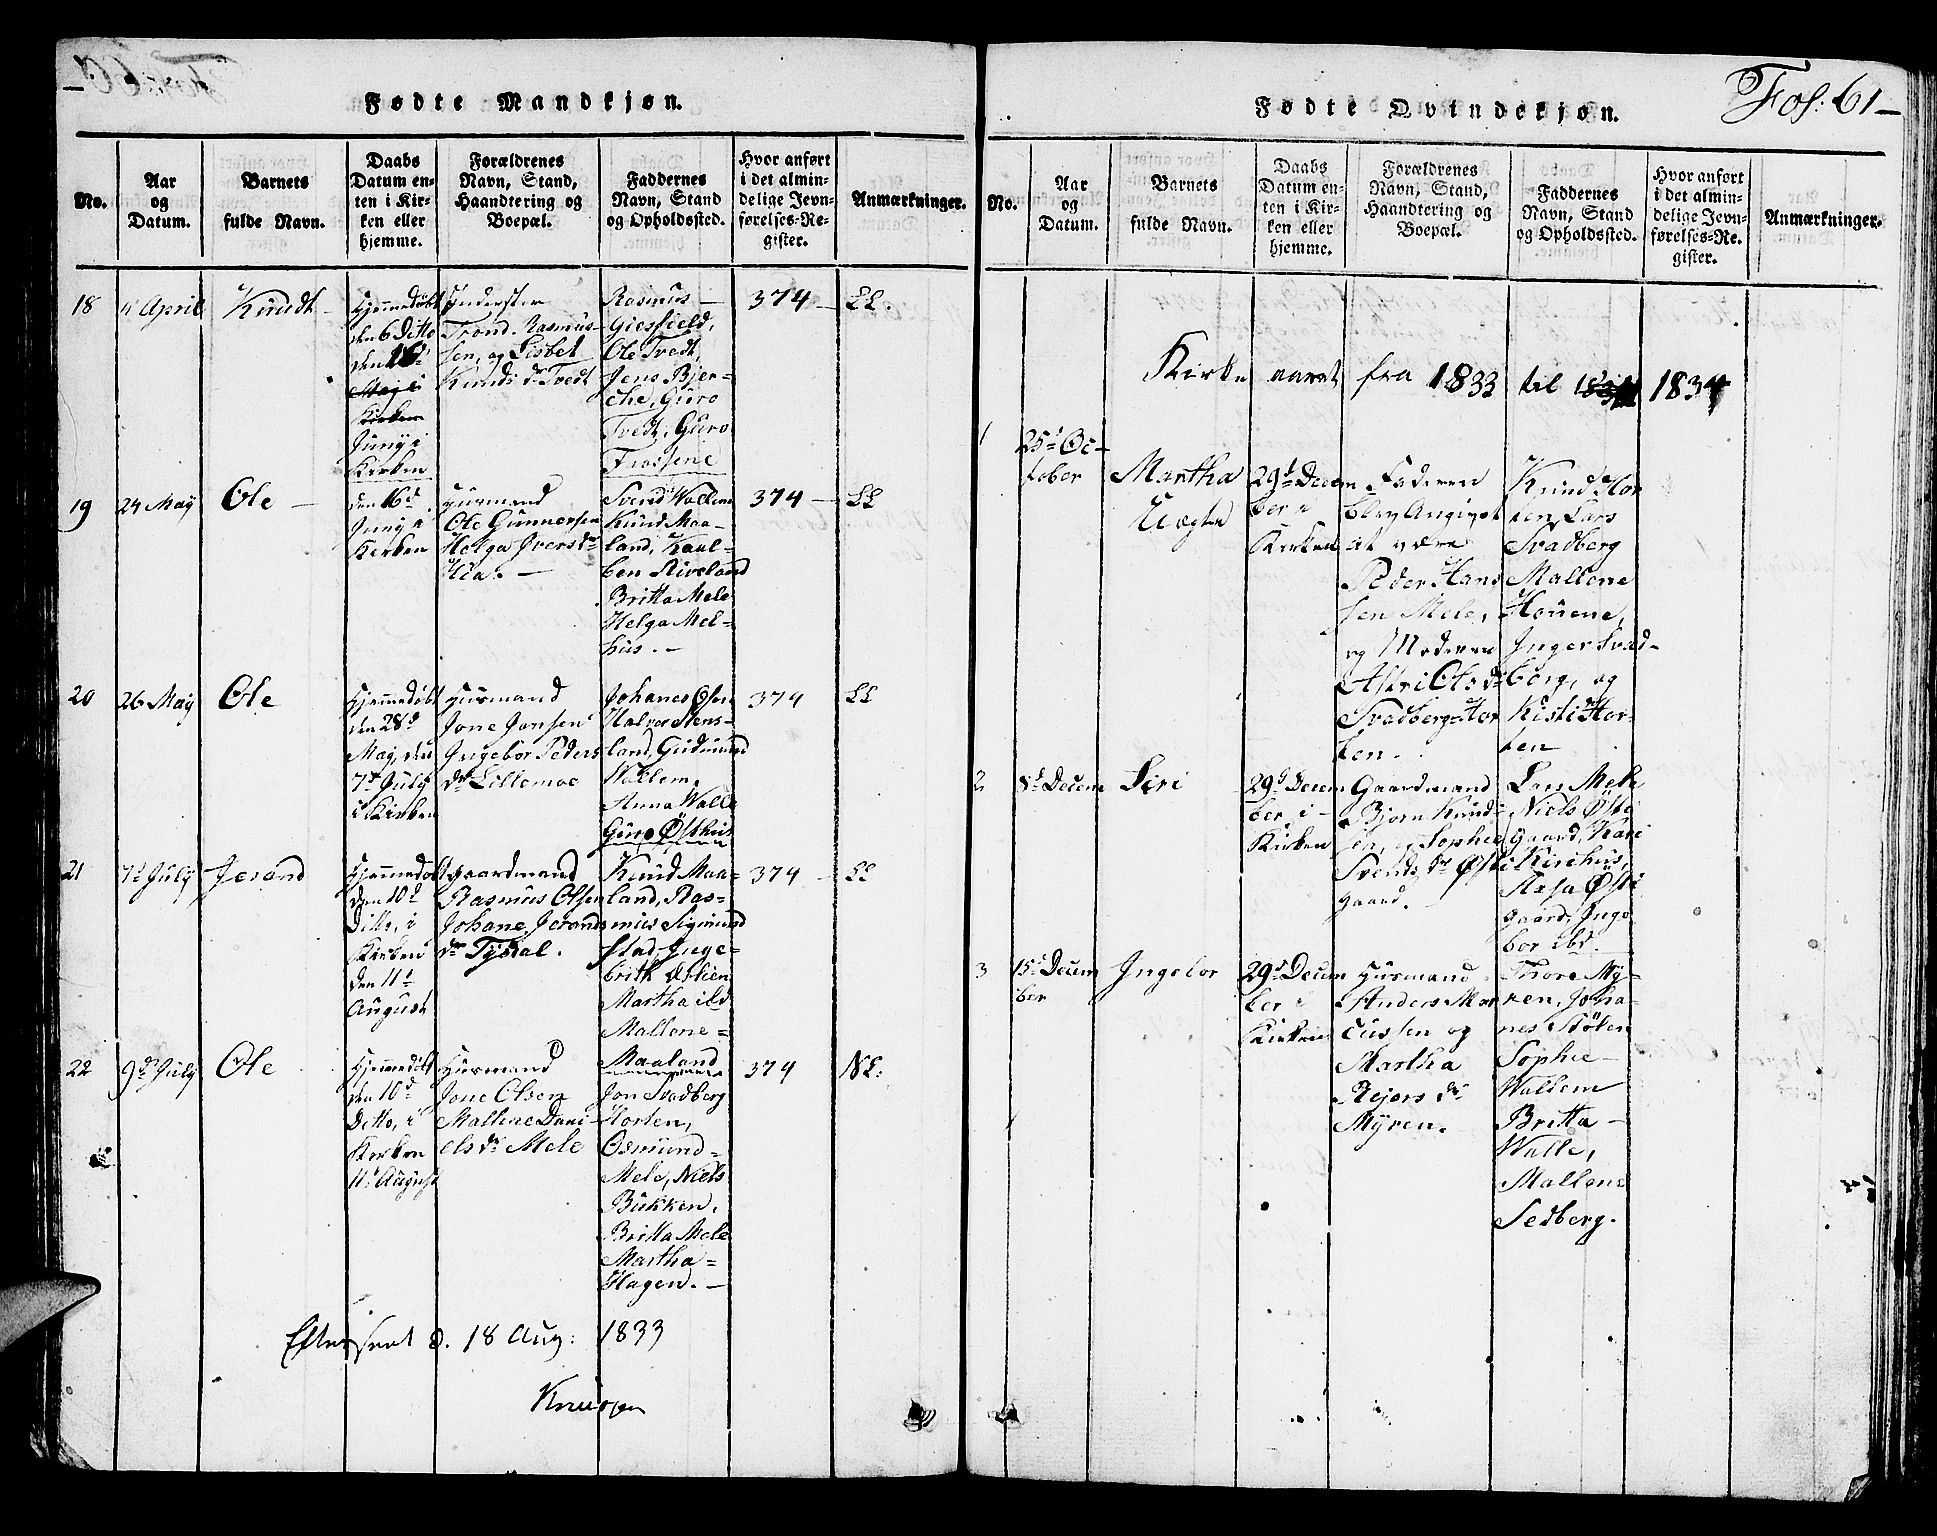 Fødte Mandkjøn.
No.
Aar
og
Datum.
Barnets
fulde Navn.
Daabs
Datum en-
ten i Kir-
ken eller
hjemme.
Forældrenes
Navn, Stand,
Haandtering og
Boepæl.
Faddernes
Navn, Stand
og Opholdssted.
Hvor anført
i det almin-
delige Jevn-
førelses-Re-
gister.
Anmærkninger.
18
April
Knudt
Hjemmedøbt
den 6 Ditto
den 16d
Maj i
Kirken
Juny i
Kirken
Inderster
Trond Rasmus-
sen, og Lisbet
Knuds dr Tvedt
Rasmus
Giesfield,
Ole Tvedt,
Jens Bjer-
che, Guro
Tvedt, Guro
Frossene
374
LL.
19
24 May
Ole
den 16d
Juny i
Kirken
Huusmand
Ole Gunnersen
Helga Ivers dr
Hia.
Svend Watlem
Knud Maa-
land, Kaal-
ben Riveland
Britta Mele
Helga Mel-
hus.
374
LL
20
26 May
Ole
Hjemmedøbt
den 28d
May, den
7d July
i Kirken
Huusmand
Jone Jonsen
Ingebor Peders
dr Lillemoe
Johanes Osen
Halvor Stens-
land, Gudmund
Watlem,
Anna Walle
Guro Østhus
374
LL
21
7d July
Jerand
Hjemmedøbt
den 10d
Ditto, i
Kirken
den 11d
August
Gaardmand
Rasmus Olsen
Johane Jerands
dr Tysdal.
Knud Maa-
land, Ras-
mus Sigmund
stad, Inge-
brith Østlien
Martha ibd
Mallene
Maaland
374
LL
22
9d July
Ole
Hjemmedøbt
den 10d
Ditto, i
Kirken
11d August
Huusmand
Jone Olsen
Mallene Dani-
els dr Mele
Jon Svadberg
Horten,
Osmund
Mele, Niels
Bukken,
Britta Mele
Martha
Hagen.
374
NL.
Efterseet d. 18 Aug: 1833
Knudsen
Fol: 61
Fødte Qvindekjøn.
No.
Aar
og
Datum.
Barnets
fulde Navn.
Daabs
Datum en-
ten i Kir-
ken eller
hjemme.
Forældrenes
Navn, Stand,
Haandtering og
Boepæl.
Faddernes
Navn, Stand
og Opholdssted.
Hvor anført
i det almin-
delige Jevn-
førelses-Re-
gister.
Anmærkninger.
Kirke aaret fra 1833 til 1834
1
25d Oc-
tober
Martha
Uægte
29d Decem
ber i
Kirken
Faderen
blev Angivet
at være
Peder Hans
sen Mele,
og Moderen
Astri Ols dr
Svadberg Hor
ten.
Knud Hor
ten, Lars
Svadberg
Mallene
Houene,
Inger Svad-
berg, og
Kisti Hor-
ten
2
8d Decem
Siri
29d Decem
ber i
Kirken
Gaardmand
Bjorn Knud-
sen, og Sophie
Svends dr Østi
gaard.
Lars Mele
Niels Østi
gaard, Kari
Kirihus,
Aasa Østi
gaard, Inge
bor ibd.
3
15d Decem
ber
Ingebor
29d Decem
ber i
Kirken
Huusmand
Anders Mar
cussen og
Martha
Rejers dr
Myren.
Thore My-
ren, Joha-
nes Stølen
Sophie
Watlem
Britta
Walle,
Mallene
Sedberg.